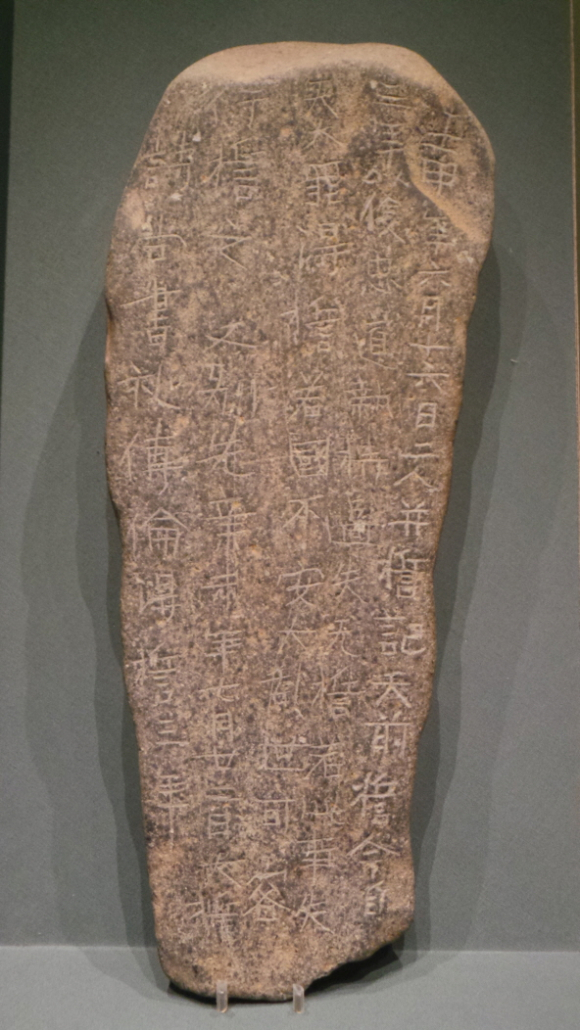 壬申年六月十六日二人并誓記天前誓今自
三年以後忠道執持過失无誓若此事失
天大罪淂誓若國不安大乱世可容
行誓之 又別先辛未年七月廿二日大誓
詩尚書礼傳倫淂誓三年